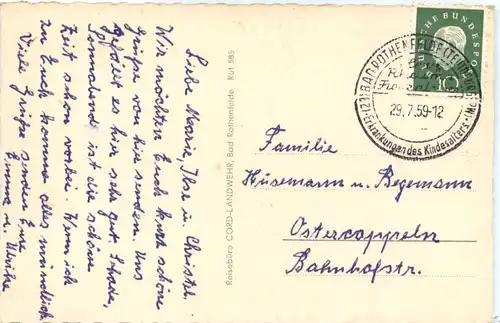 Liebe Marie, Ilse u. Christel
Wir möchten Euch kurz schöne
Grüße von hier senden. Uns
gefällt es hier sehr gut. Schade,
Sonnabend ist die schöne
Zeit schon vorbei. Wenn ich
zu Euch komme alles mündlich
Viele Grüße senden Eure
Emma u. Ulrike
Reisebüro CORD-LANDWEHR, Bad Rothenfelde Ruf 585
HE BUNDESPO
10
BAD ROTHENFELDE (TEUTOB
29.7.59-12
Erkrankungen des Kindesalters
Familie
Hüsemann u. Begemann
Ostercappeln
Bahnhofstr.